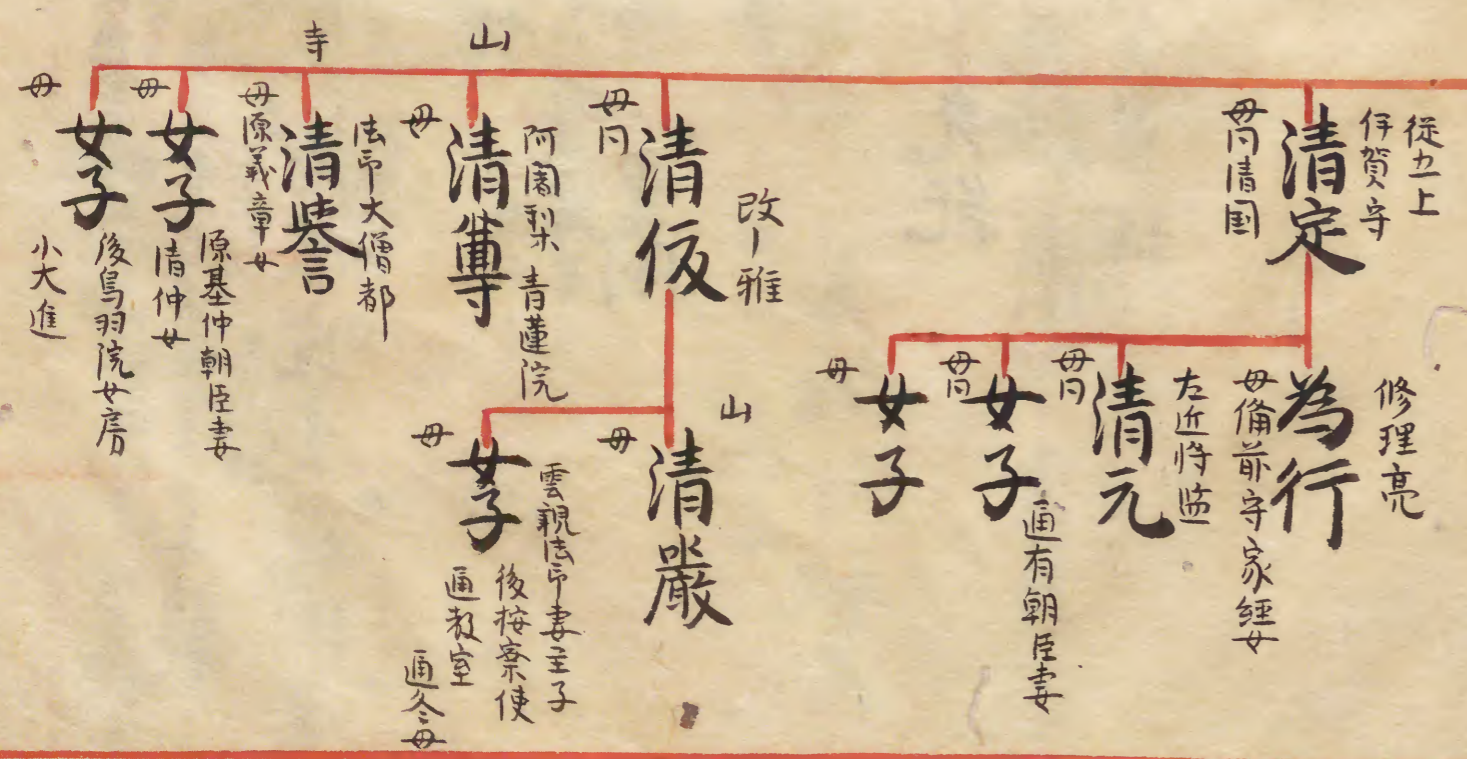 従五上
伊賀守
清定
母同清国
修理亮
為行
母備前守家経女
左近将監
清元
母同
女子
母同
通有朝臣妻
女子
母
改ー雅
清仮
母同
山
清嚴
母
女子
母
雲親法印妻主子
後按察使
通教室
通冬母
山
阿闍梨 青蓮院
清尊
母
寺
法印大僧都
清誉
母源義章女
女子
母
源基仲朝臣妻
清仲女
女子
母
後鳥羽院女房
小大進